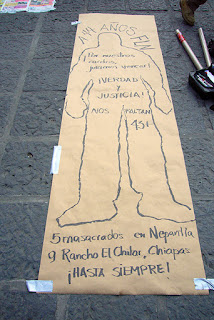 AÑOS FLN
Por nuestros
caídos,
juramos vencer!
¡VERDAD
Y
JUSTICIA!
NOS FALTAN
45!
5 masacrados en Nepantla
9 Rancho El Chilar, Chiapas
¡HASTA SIEMPRE!